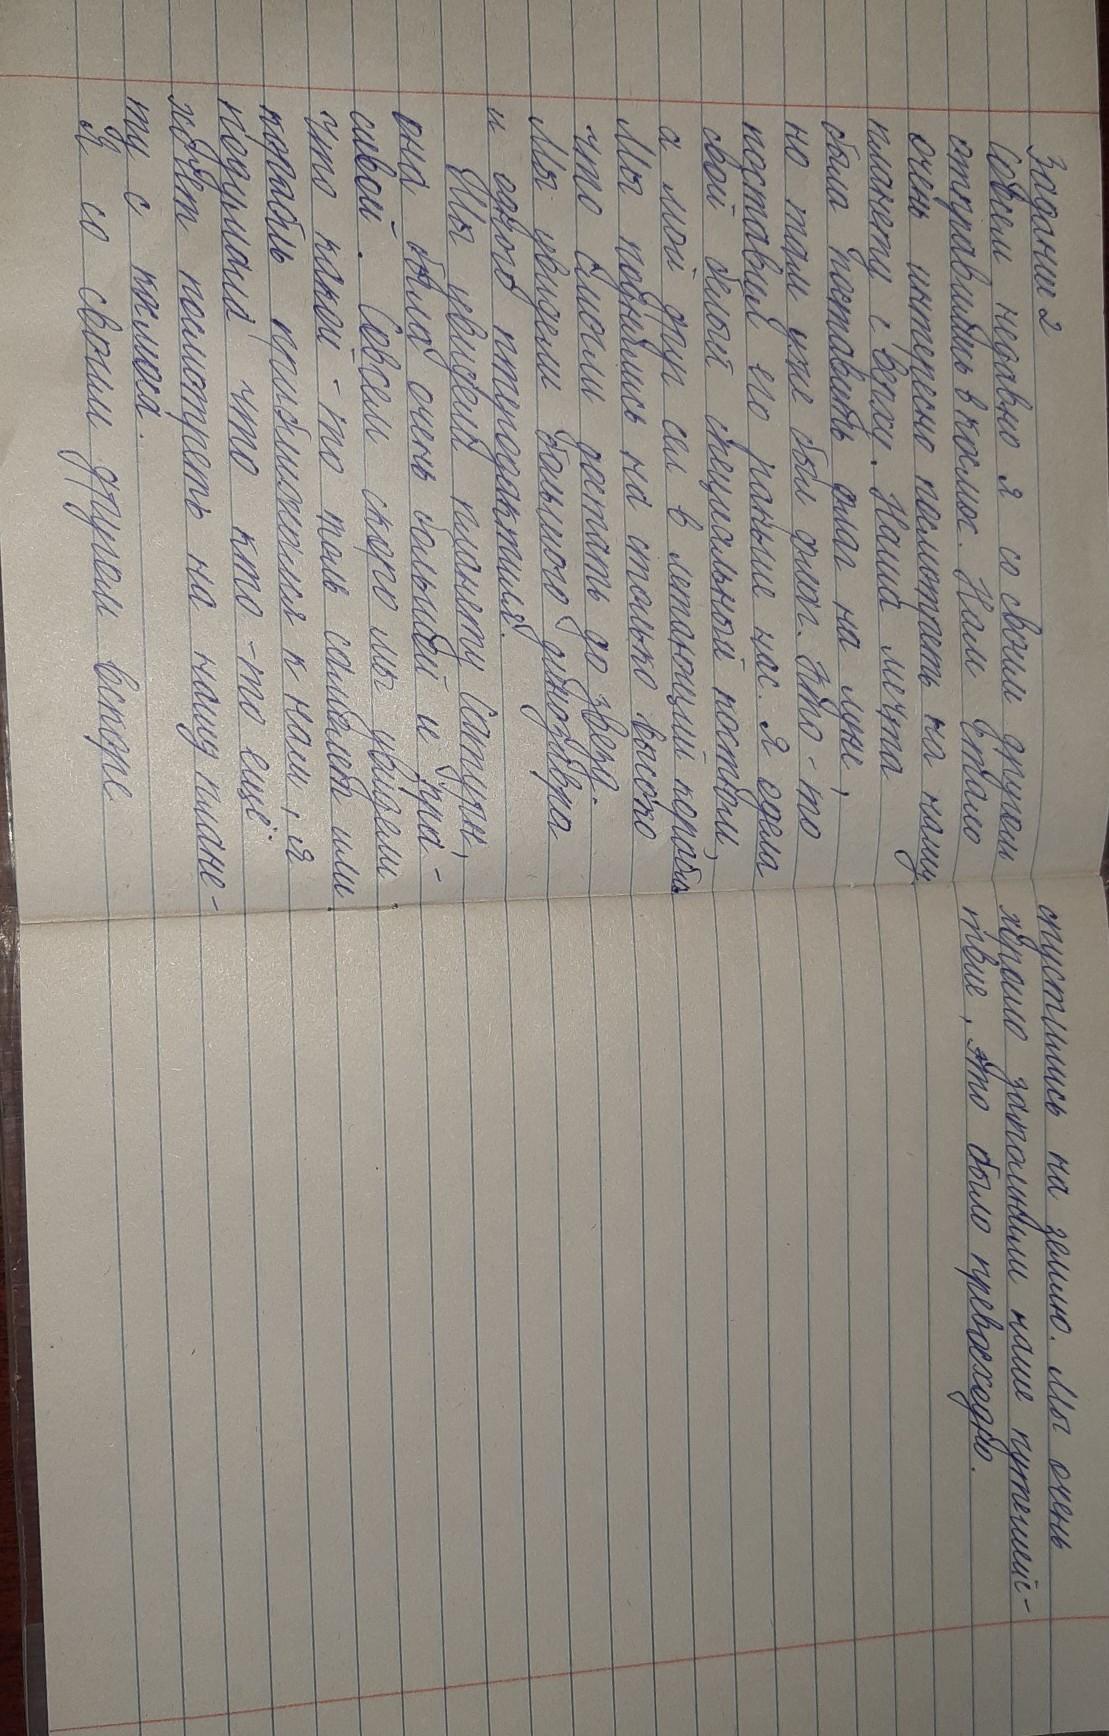 Задание 2
Совсем недавно я со своим другом
отправились в космос. Нам стало
очень интересно посмотреть на нашу
планету с верху. Наша мечта
была поставить флаг на луне,
но там уже был флаг. Кто-то
поставил его раньше нас. Я одела
свой белый специальный костюм,
а мой друг сел в летающий корабль
Мы поднялись на столько высоко
что смогли достать до звезд.
Мы увидели большого динозавра
и одного птеродактиля.
Мы увидели планету Сатурн,
она была очень большой и кра-
сивой. Совсем скоро мы увидели
что какой-то толь самолёт или
корабль приближался к нам, я
подумала что кто-то ещё
хочет посмотреть на нашу плане-
ту с космоса.
Я со своим другом вскоре
спустились на землю. Мы очень
хорошо запомнили наше путешей-
твие, это было превосходно.